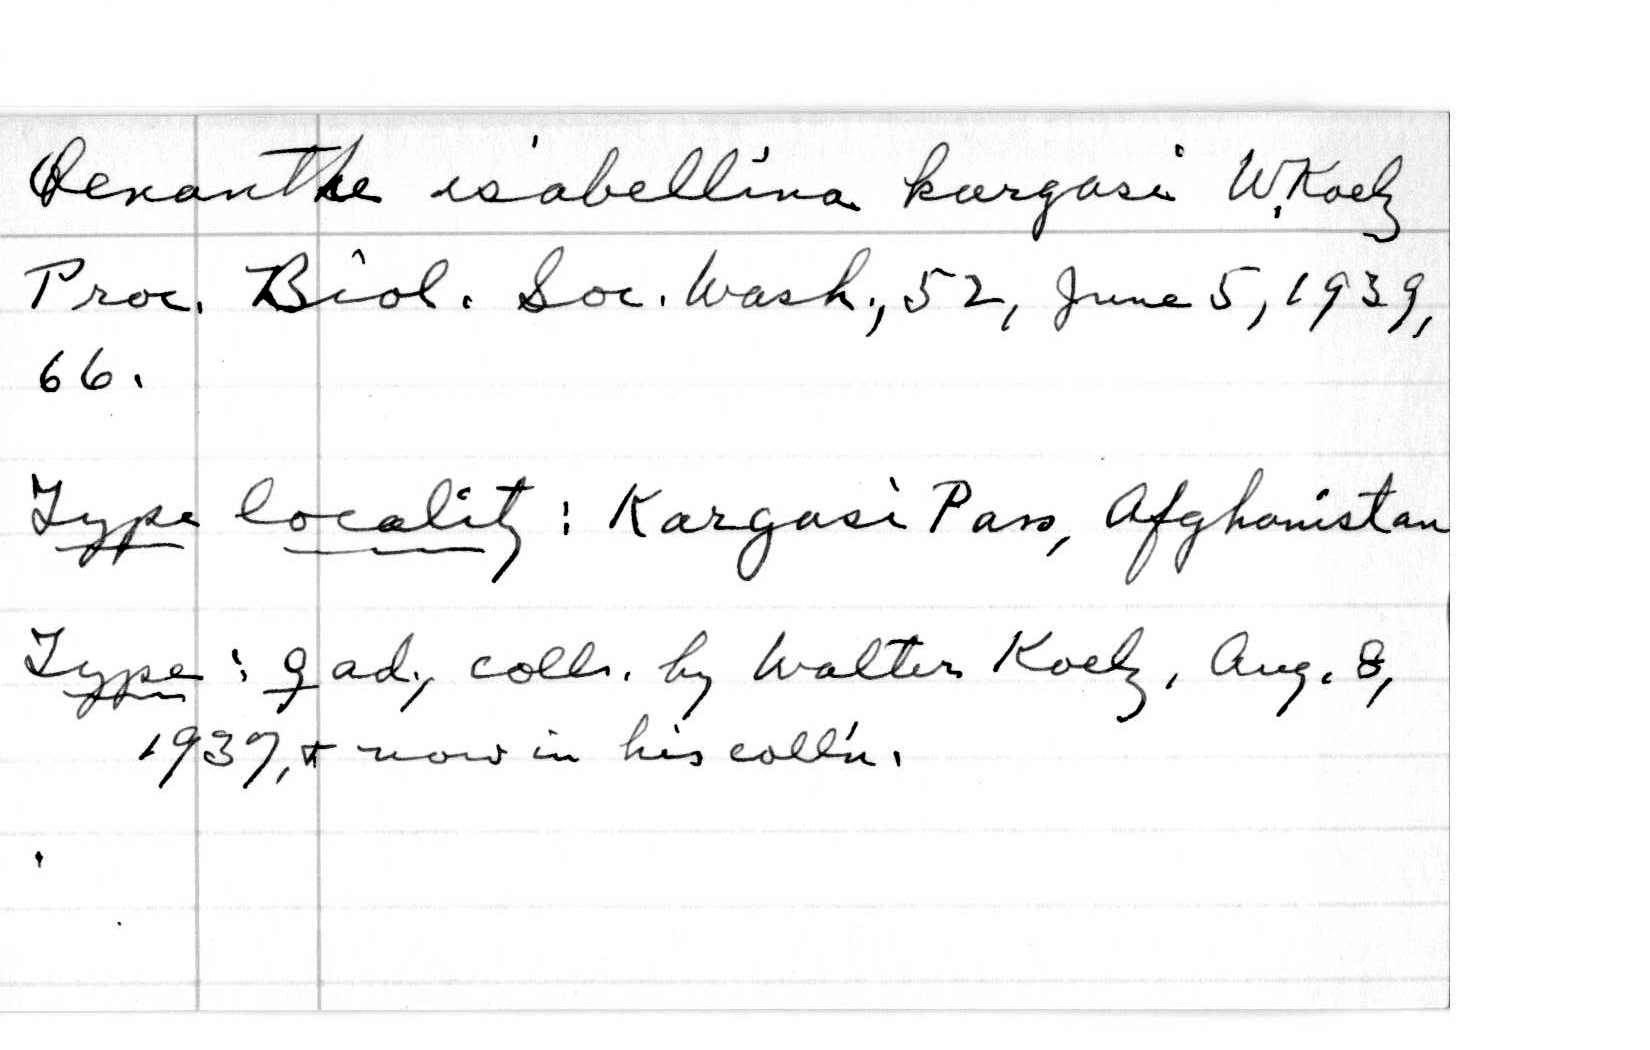 Oenanthe isabellina kargasi W. Koelz
Proc. Biol. Soc. Wash., 52, June 5, 1939,
66.
Type locality: Kargasi Pass, Afghanistan
Type: ♀ ad., coll. by Walter Koelz, Aug. 8,
1937, + now in his coll'n.